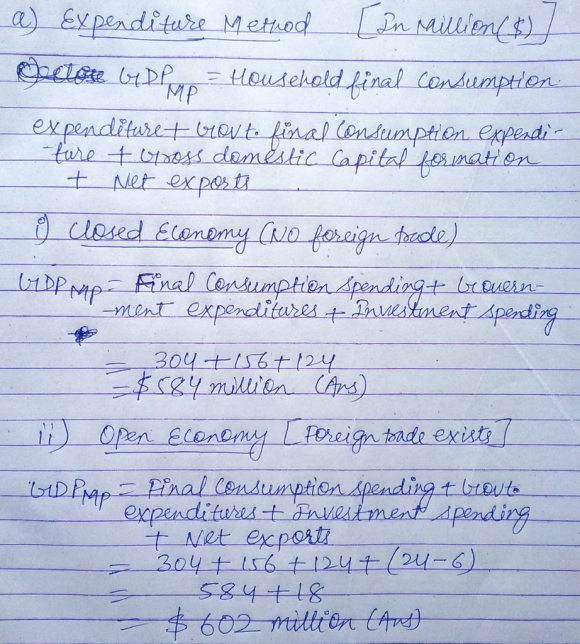 a) Expenditure Method [In Million($)]
GDP MP = Household final Consumption
expenditure + Govt. final Consumption expendi-
-ture + Gross domestic Capital formation
+ Net exports
i) Closed Economy (No foreign trade)
GDP MP = Final Consumption spending + Govern-
-ment expenditures + Investment spending
= 304 + 156 + 124
= $584 million (Ans)
ii) Open Economy [Foreign trade exists]
GDP MP = Final Consumption spending + Govt.
expenditures + Investment spending
+ Net exports
= 304 + 156 + 124 + (24-6)
= 584 + 18
= $602 million (Ans)